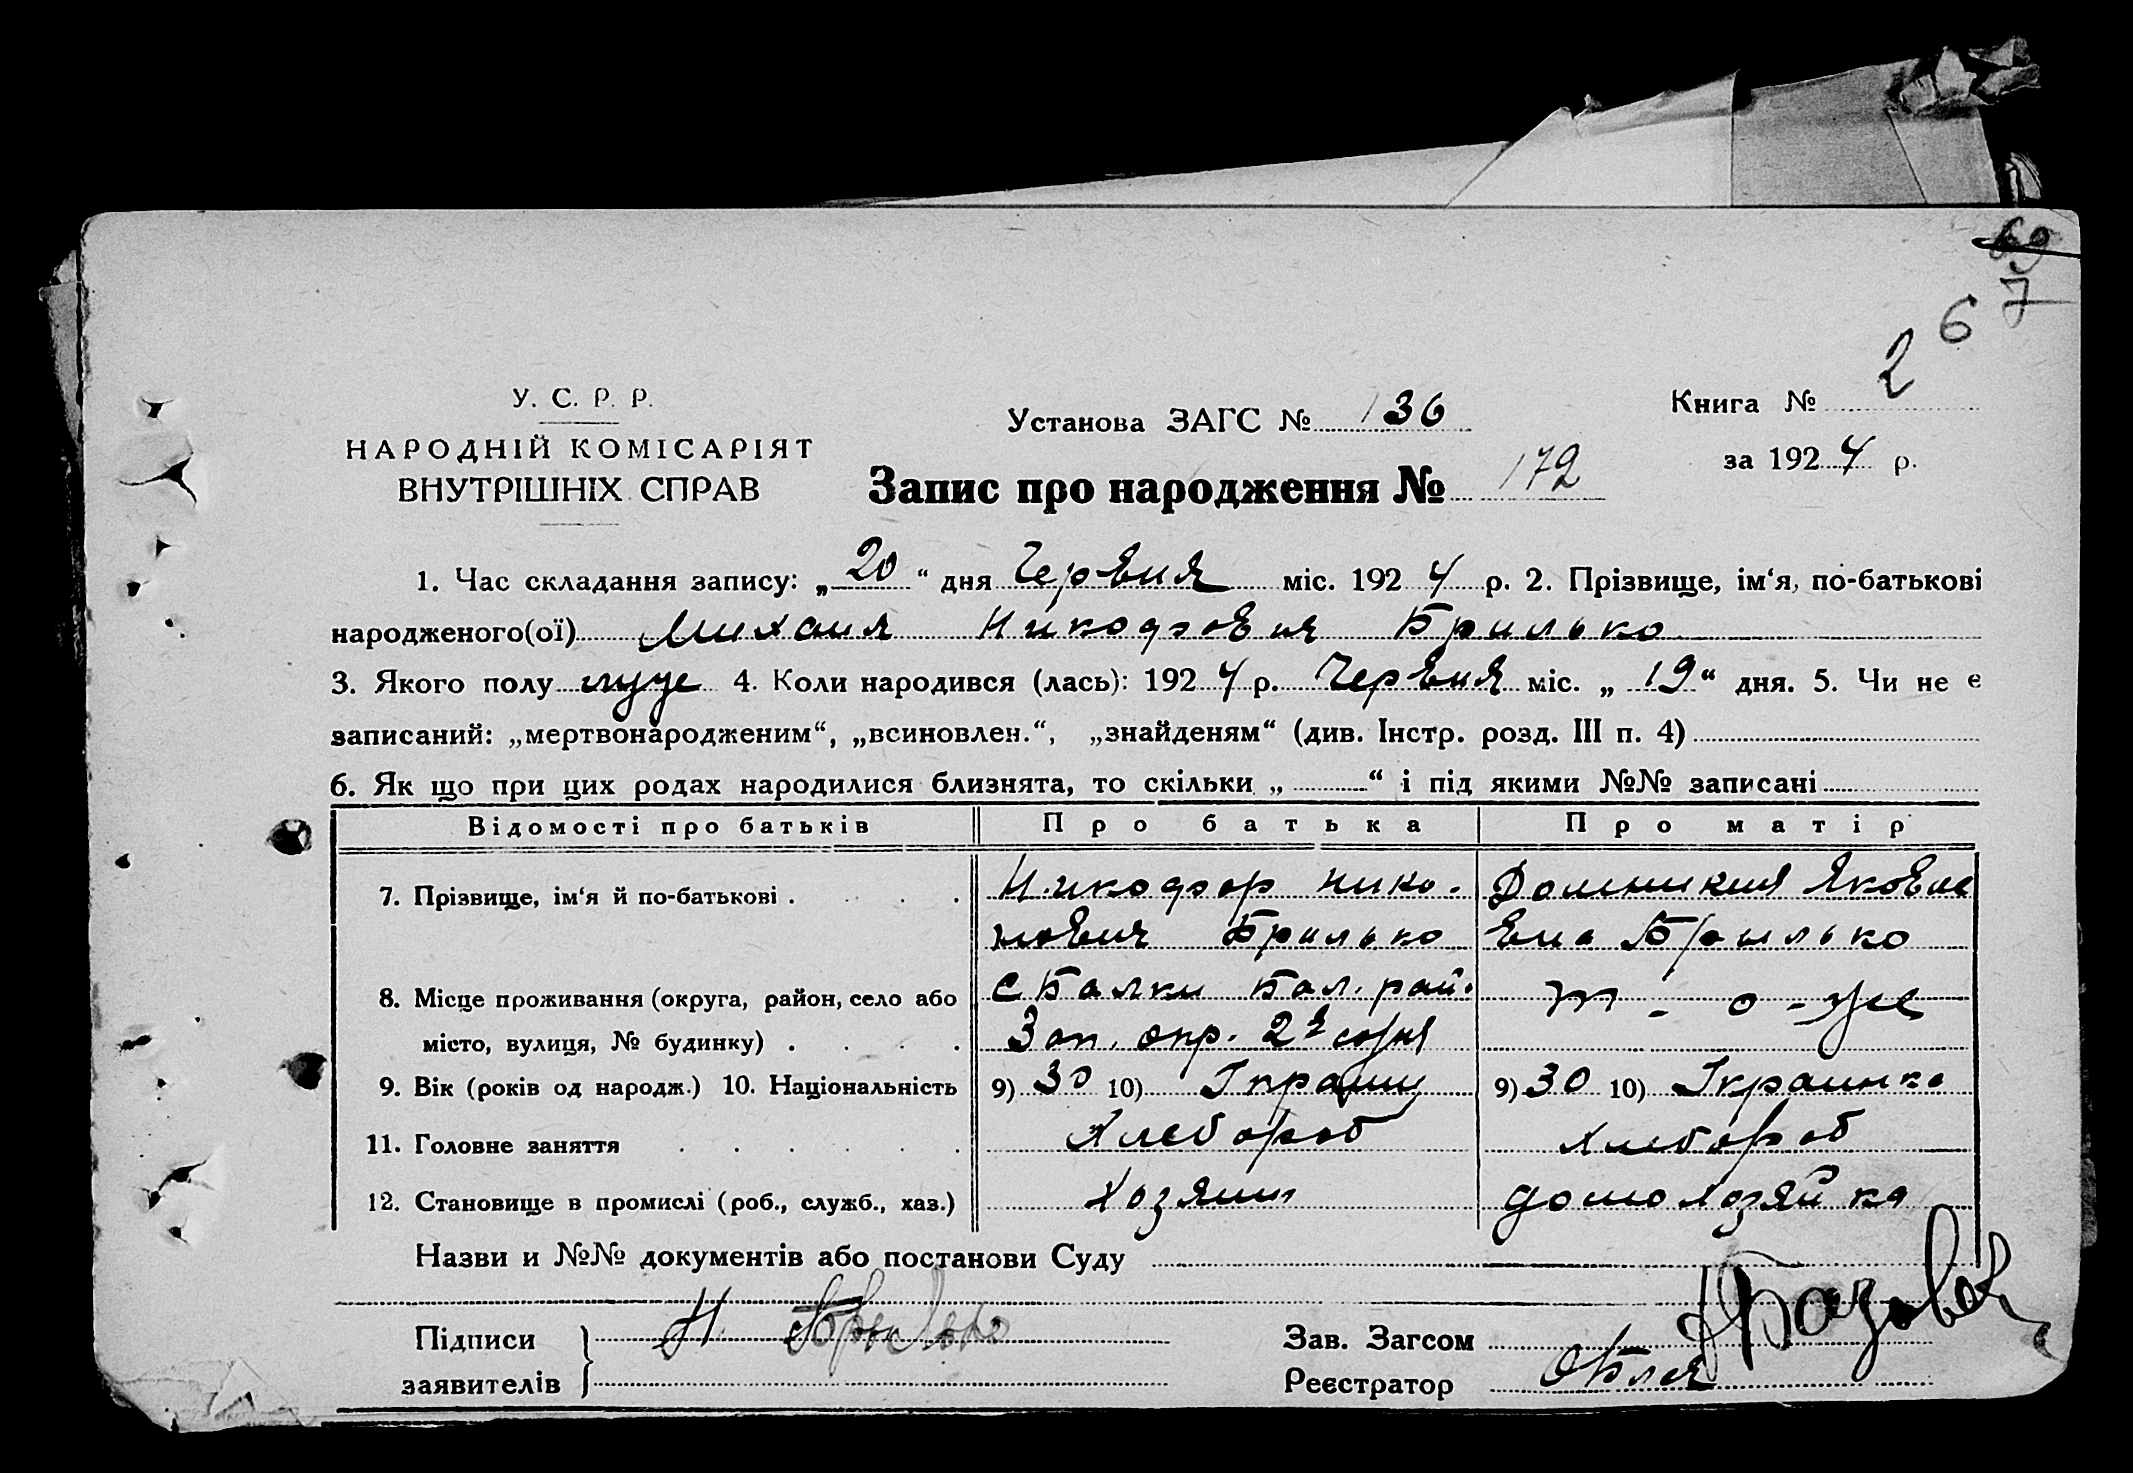 69
7
6
У. С. Р. Р.
НАРОДНІЙ КОМІСАРІЯТ
ВНУТРІШНІХ СПРАВ
Установа ЗАГС № 136
Книга № 2
за 1924 р.
Запис про народження № 172
1. Час складання запису: „20“ дня Червня міс. 1924 р. 2. Прізвище, ім‘я, по-батькові
народженого(ої) Михаил Никодфович Брилько
3. Якого полу муже 4. Коли народився (лась): 1924 р. Червня міс. „19“ дня. 5. Чи не є
записаний: „мертвонародженим“, „всиновлен.“, „знайденям“ (див. Інстр. розд. III п. 4)
6. Як що при цих родах народилися близнята, то скільки „ “ і під якими №№ записані
Відомості про батьків Про батька Про матір
7. Прізвище, ім‘я й по-батькові Никодфор Нико- Домникия Яковле
лович Брилько вна Брилько
8. Місце проживання (округа, район, село або с Балки Бал. рай. т-о-же
місто, вулиця, № будинку) Зап. окр. 2я сотня
9. Вік (років од народж.) 10. Національність 9) 30 10) 9) 30 10) Украинка
11. Головне заняття Хлебороб хлебороб
12. Становище в промислі (роб., служб., хаз.) Хозяин домохозяйка
Назви и №№ документів або постанови Суду
Підписи
заявителів
Н. Брилько
Зав. Загсом
Реєстратор